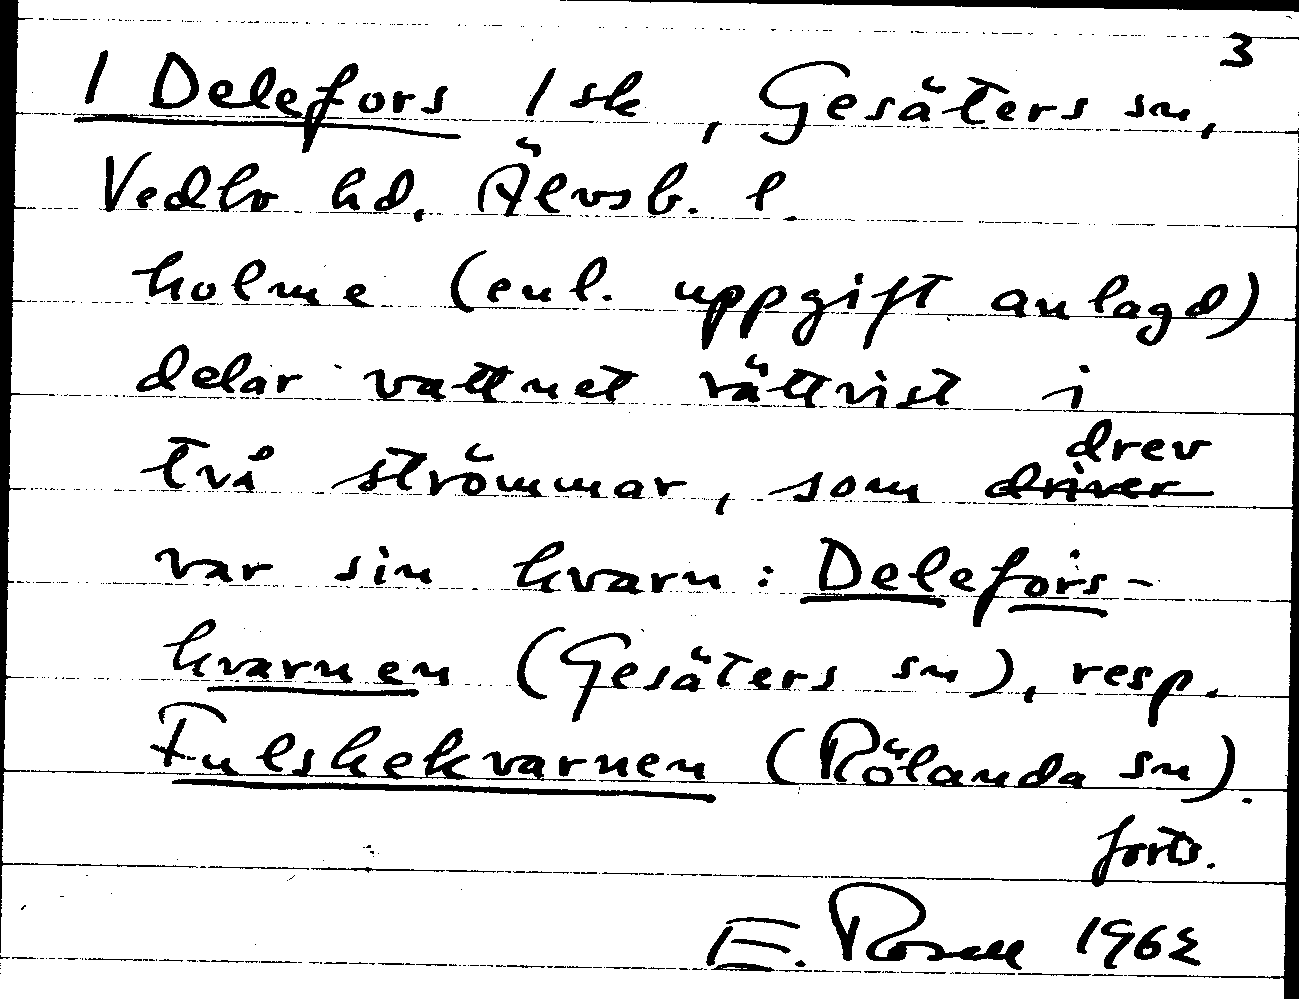 3
1 Delefors 1 sk, Gesäters sn,
Vedbo hd. Älvsb. l.
holme (enl. uppgift anlagd)
delar vattnet rättvist i
drev
två strömmar, som driver
var sin kvarn: Delefors-
kvarnen (Gesäters sn), resp.
Fulskekvarnen (Rölanda sn).
forts.
E. Rosell 1962